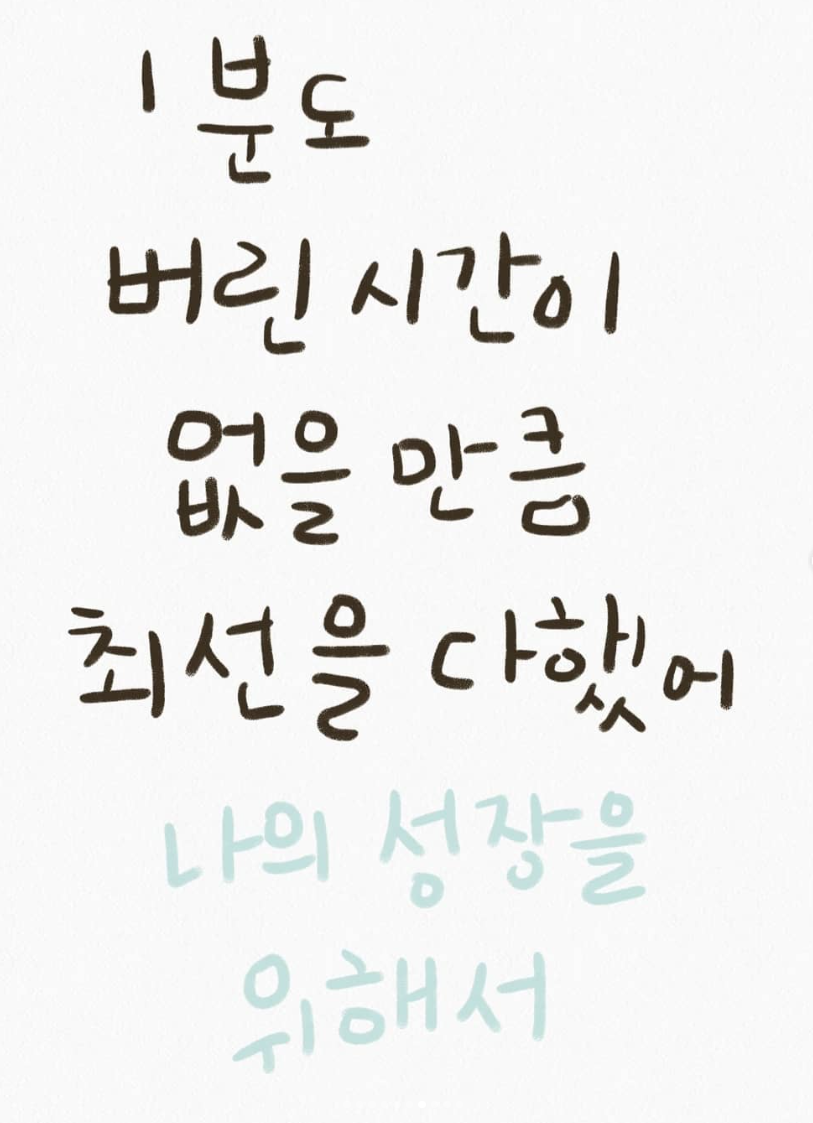 1분도
버린 시간이
없을 만큼
최선을 다했어
나의 성장을
위해서